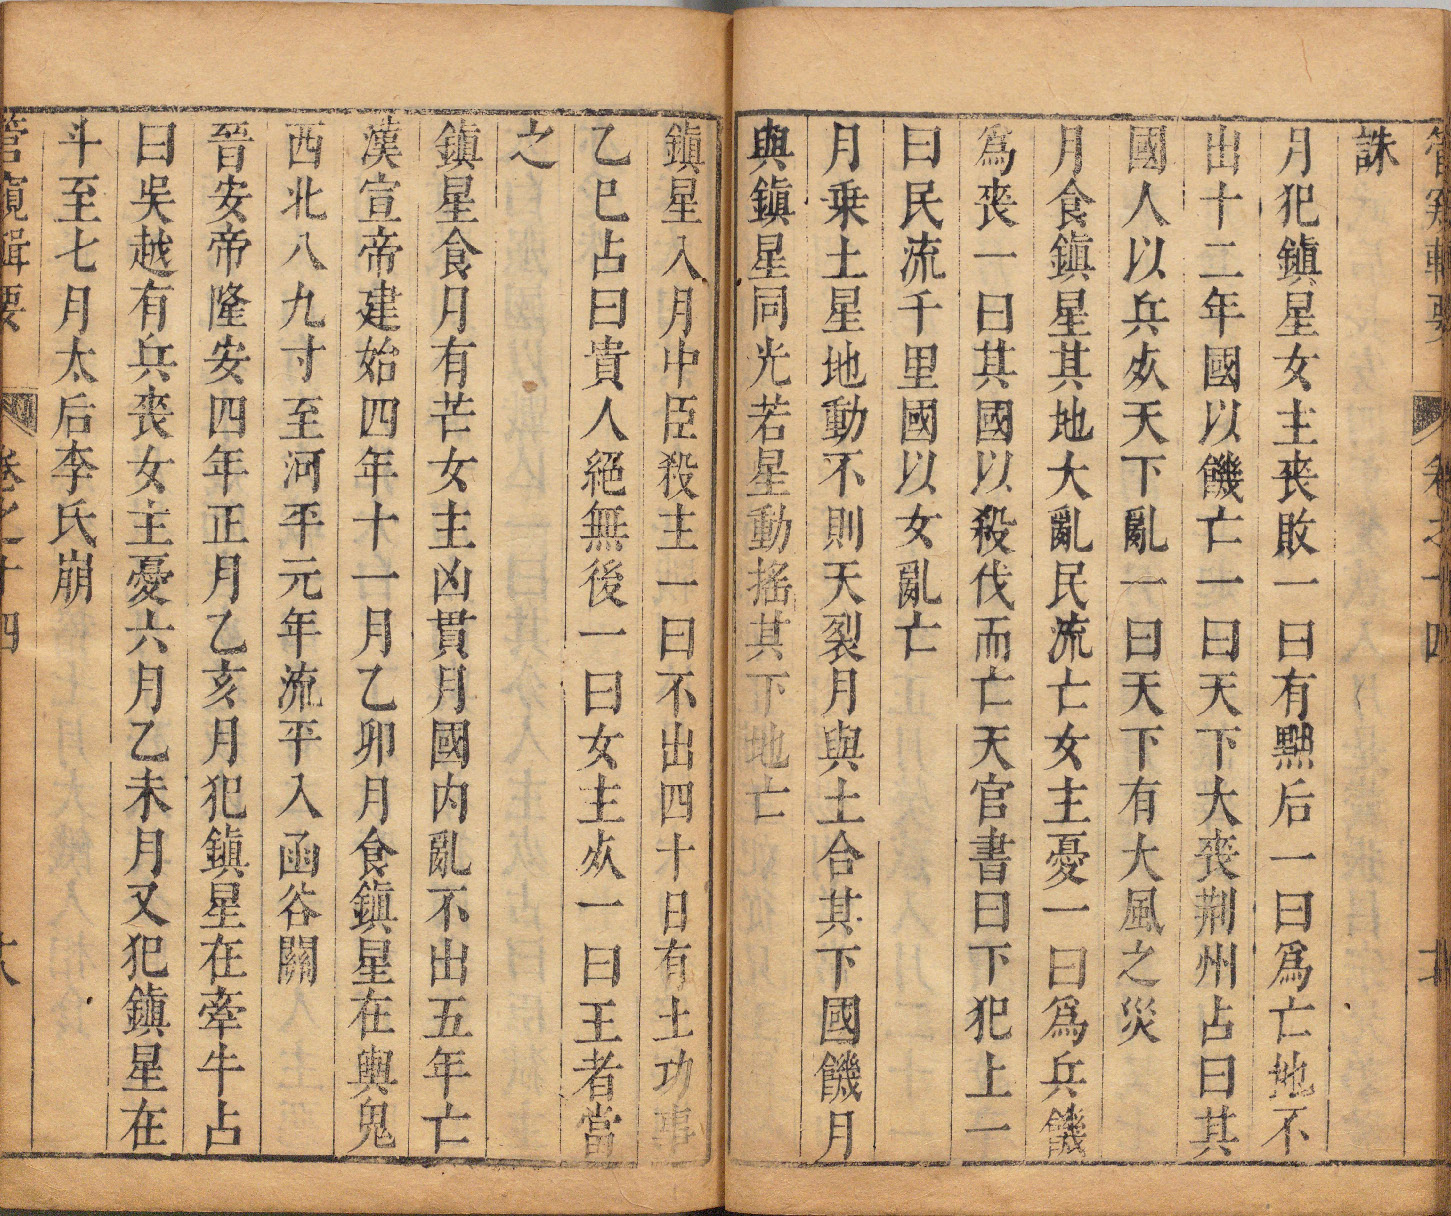 管窺輯要 卷之十四
誅
月犯鎮星女主丧敗一曰有黜后一曰爲亡地不
出十二年國以饑亡一曰天下大丧荆州占曰其
國人以兵㱕天下亂一曰天下有大風之災
月食鎮星其地大亂民流亡女主憂一曰爲兵饑
爲丧一曰其國以殺伐而亡天官書曰下犯上一
曰民流千里國以女亂亡
月乗土星地動不則天裂月與土合其下國饑月
與鎮星同光若星動揺其下地亡
鎮星入月中臣殺主一曰不出四十日有土功事
乙巳占曰貴人絕無後一曰女主㱕一曰王者當
之
鎮星食月有芒女主凶貫月國内亂不出五年亡
漢宣帝建始四年十一月乙卯月食鎮星在輿鬼
西北八九寸至河平元年流平入函谷關
晉安帝隆安四年正月乙亥月犯鎮星在牽牛占
曰吳越有兵丧女主憂六月乙未月又犯鎮星在
斗至七月太后李氏崩
管窺輯要 卷之十四 十八